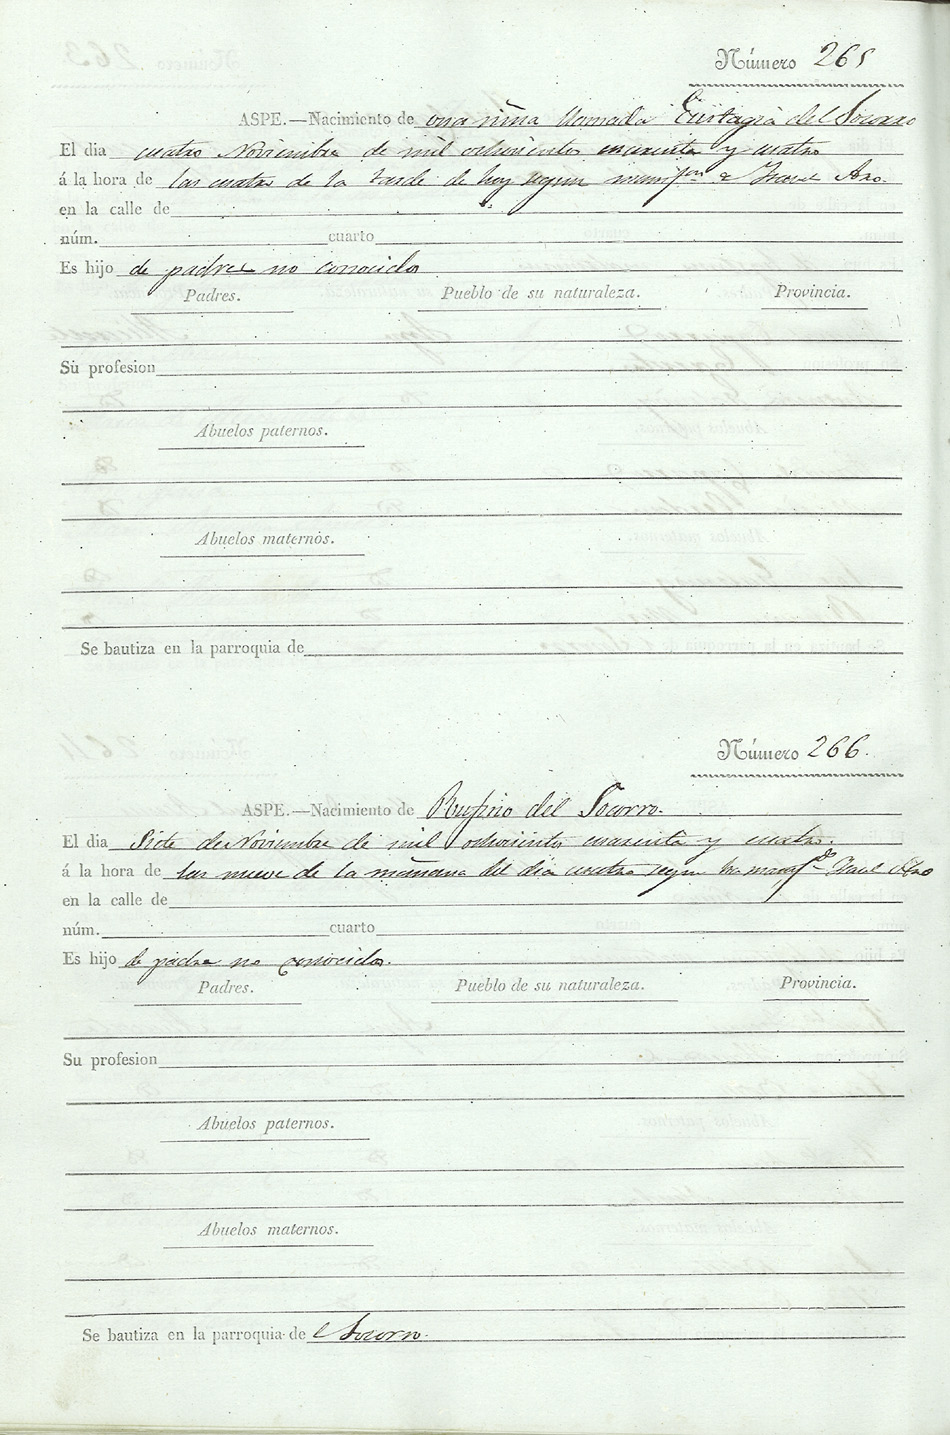 Número 265
ASPE.—Nacimiento de una niña llamada Eustaqia del Socorro
El dia cuatro Noviembre de mil ochocientos cuarenta y cuatro
á la hora de las cuatro de la tarde de hoy segun
en la calle de
núm. cuarto
Es hijo de padres no conocidos
Padres. Pueblo de su naturaleza. Provincia.
Su profesion
Abuelos paternos.
Abuelos maternos.
Se bautiza en la parroquia de
Número 266.
ASPE.—Nacimiento de Rufino del Socorro.
El dia Siete de Noviembre de mil ochocientos cuarenta y cuatro.
á la hora de las nueve de la mañana del dia cuatro segun ha
en la calle de
núm. cuarto
Es hijo de padre no conocidos.
Padres. Pueblo de su naturaleza. Provincia.
Su profesion
Abuelos paternos.
Abuelos maternos.
Se bautiza en la parroquia de Socorro.